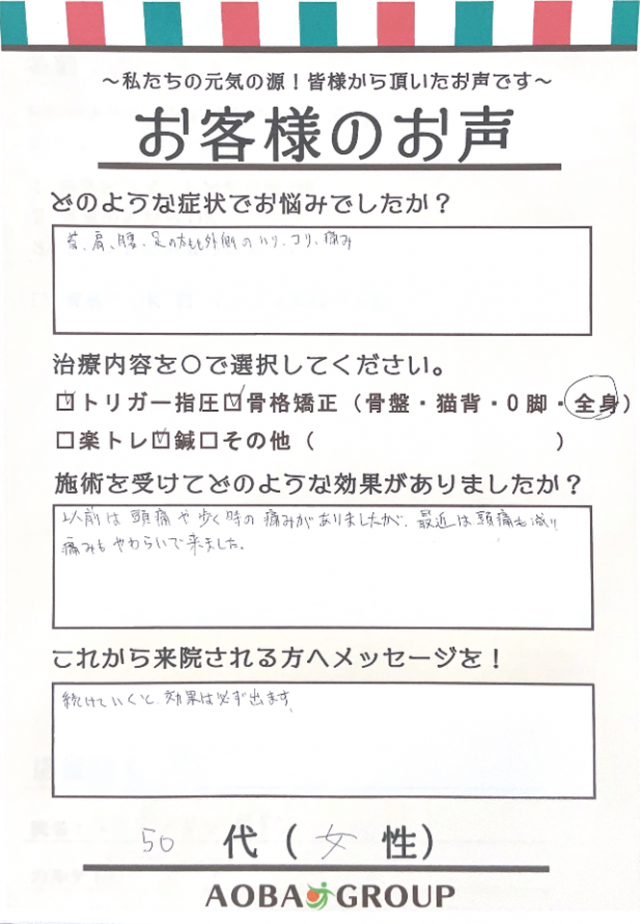 ～私たちの元気の源！皆様から頂いたお声です～
お客様のお声
どのような症状でお悩みでしたか？
首、肩、腰、足の太もも外側のハリ、コリ、痛み
治療内容を〇で選択してください。
☑トリガー指圧☑骨格矯正（骨盤・猫背・O脚・全身）
□楽トレ☑鍼□その他（　　　　　　　　　　）
施術を受けてどのような効果がありましたか？
以前は頭痛や歩く時の痛みがありましたが、最近は頭痛も減り
痛みもやわらいで来ました。
これから来院される方へメッセージを！
続けていくと、効果は必ず出ます。
50代（女性）
AOBA GROUP